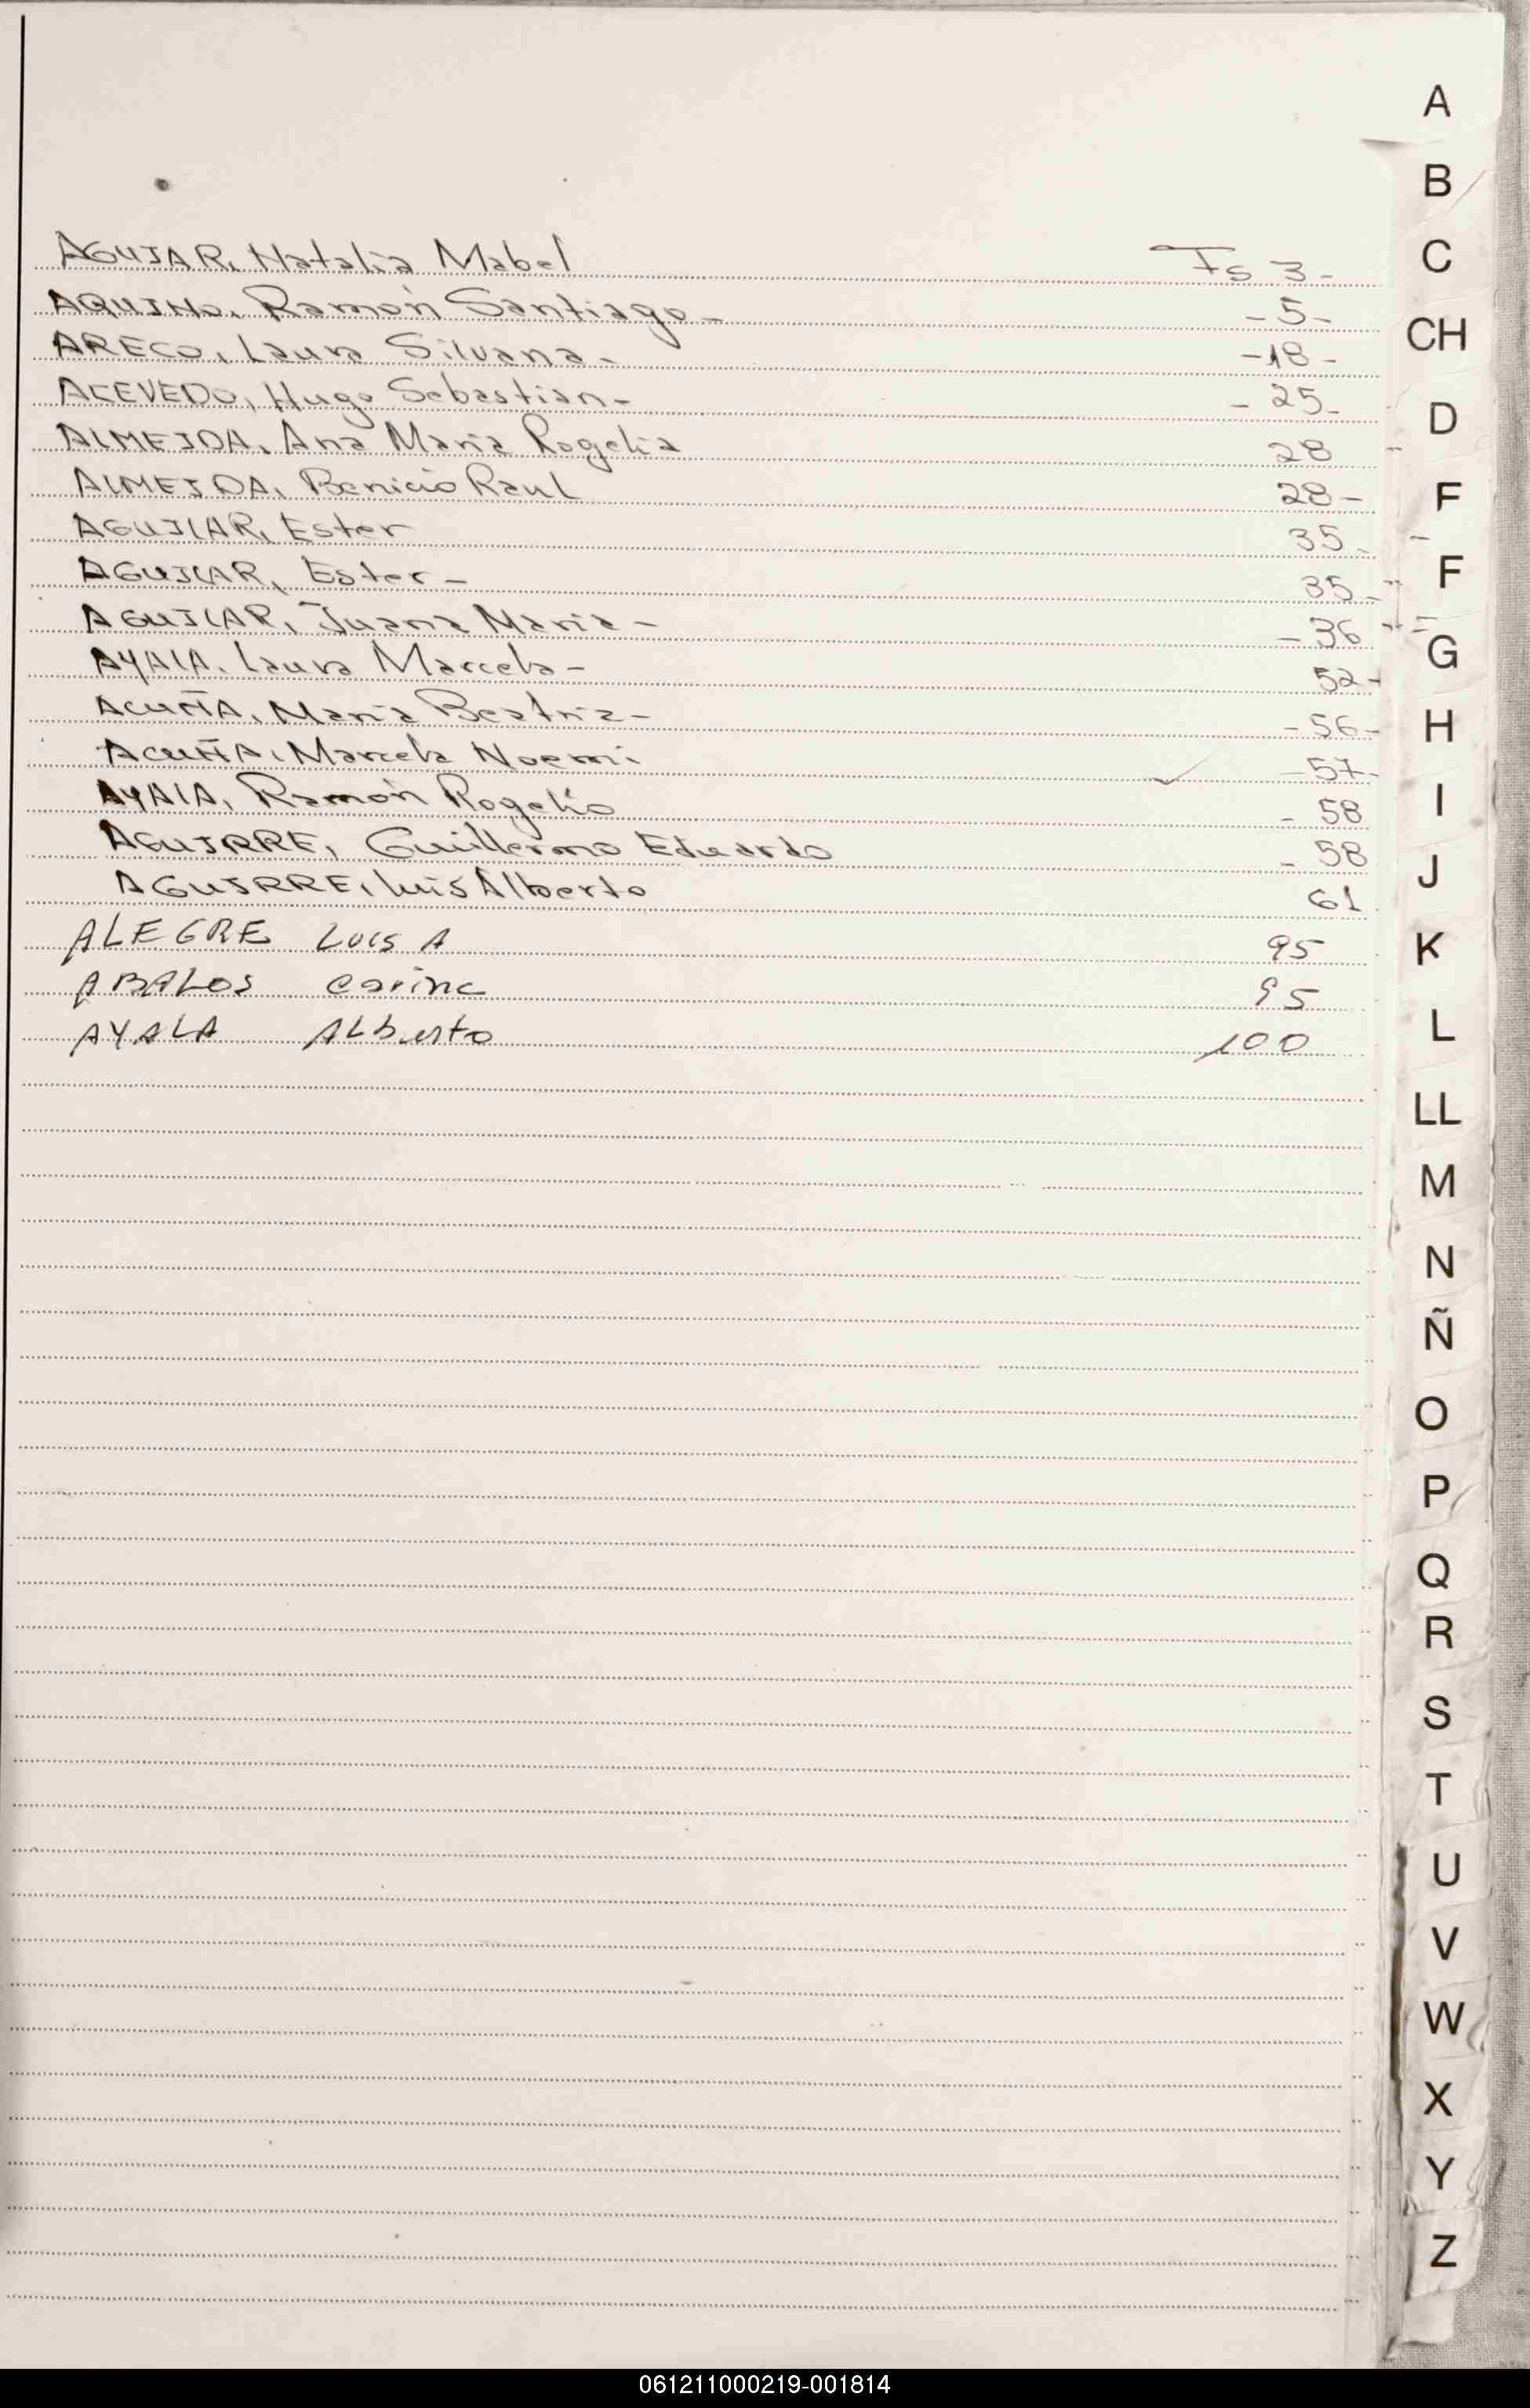 AGUIAR, Natalia Mabel Fs 3-
AQUINO, Ramón Santiago- -5-
ARECO, Laura Silvana- -18-
ACEVEDO, Hugo Sebastián- -25-
ALMEIDA, Ana María Rogelia 28
ALMEIDA, Benicio Raul 28-
AGUILAR, Ester 35-
AGUILAR, Ester- 35-
AGUILAR, Juana María- -36
AYALA, Laura Marcela- 52-
ACUÑA, María Beatriz- -56-
ACUÑA, Marcela Noemí ✓ -57-
AYALA, Ramón Rogelio - 58
AGUIRRE, Guillermo Eduardo - 58
AGUIRRE, Luis Alberto 61
ALEGRE LUIS A 95
ABALOS Carina 95
AYALA ALberto 100
A
B
C
CH
D
F
F
G
H
I
J
K
L
LL
M
N
Ñ
O
P
Q
R
S
T
U
V
W
X
Y
Z
061211000219-001814